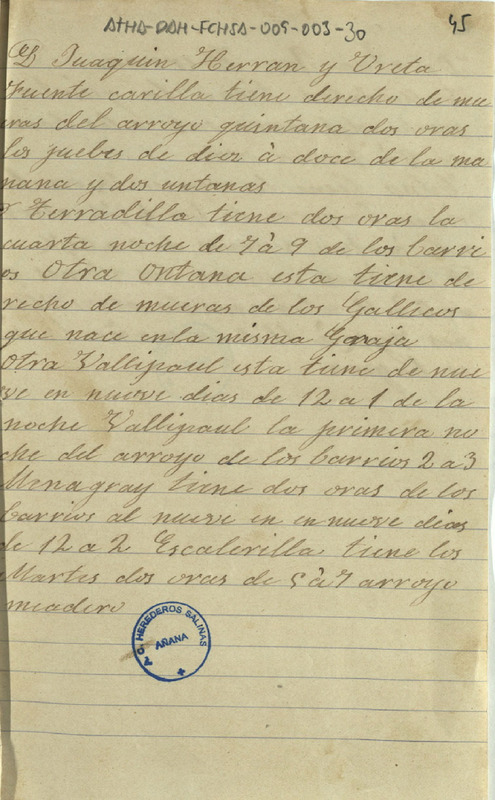 ATHA-DAH-FCHSA-009-003-30
45
D Juaquin Herran y Vreta
Fuente carilla tiene derecho de mue
eras del arroyo quintana dos oras
los juebes de diez à doce de la ma
nana y dos untanas
Terradilla tiene dos oras la
cuarta noche de 7 à 9 de los barri
os Otra Ontana esta tiene de
recho de mueras de los Gallicos
que nace en la misma Granja
Otra Vallipaul esta tiene de nue
ve en nueve dias de 12 a 1 de la
noche Vallipaul la primera no
che del arroyo de los barrios 2 a 3
Minagray tiene dos oras de los
barrios al nueve en en nueve dias
de 12 a 2 Escalerilla tiene los
Martes dos oras de 5 à 7 arroyo
meadero
HEREDEROS SALINAS
AÑANA